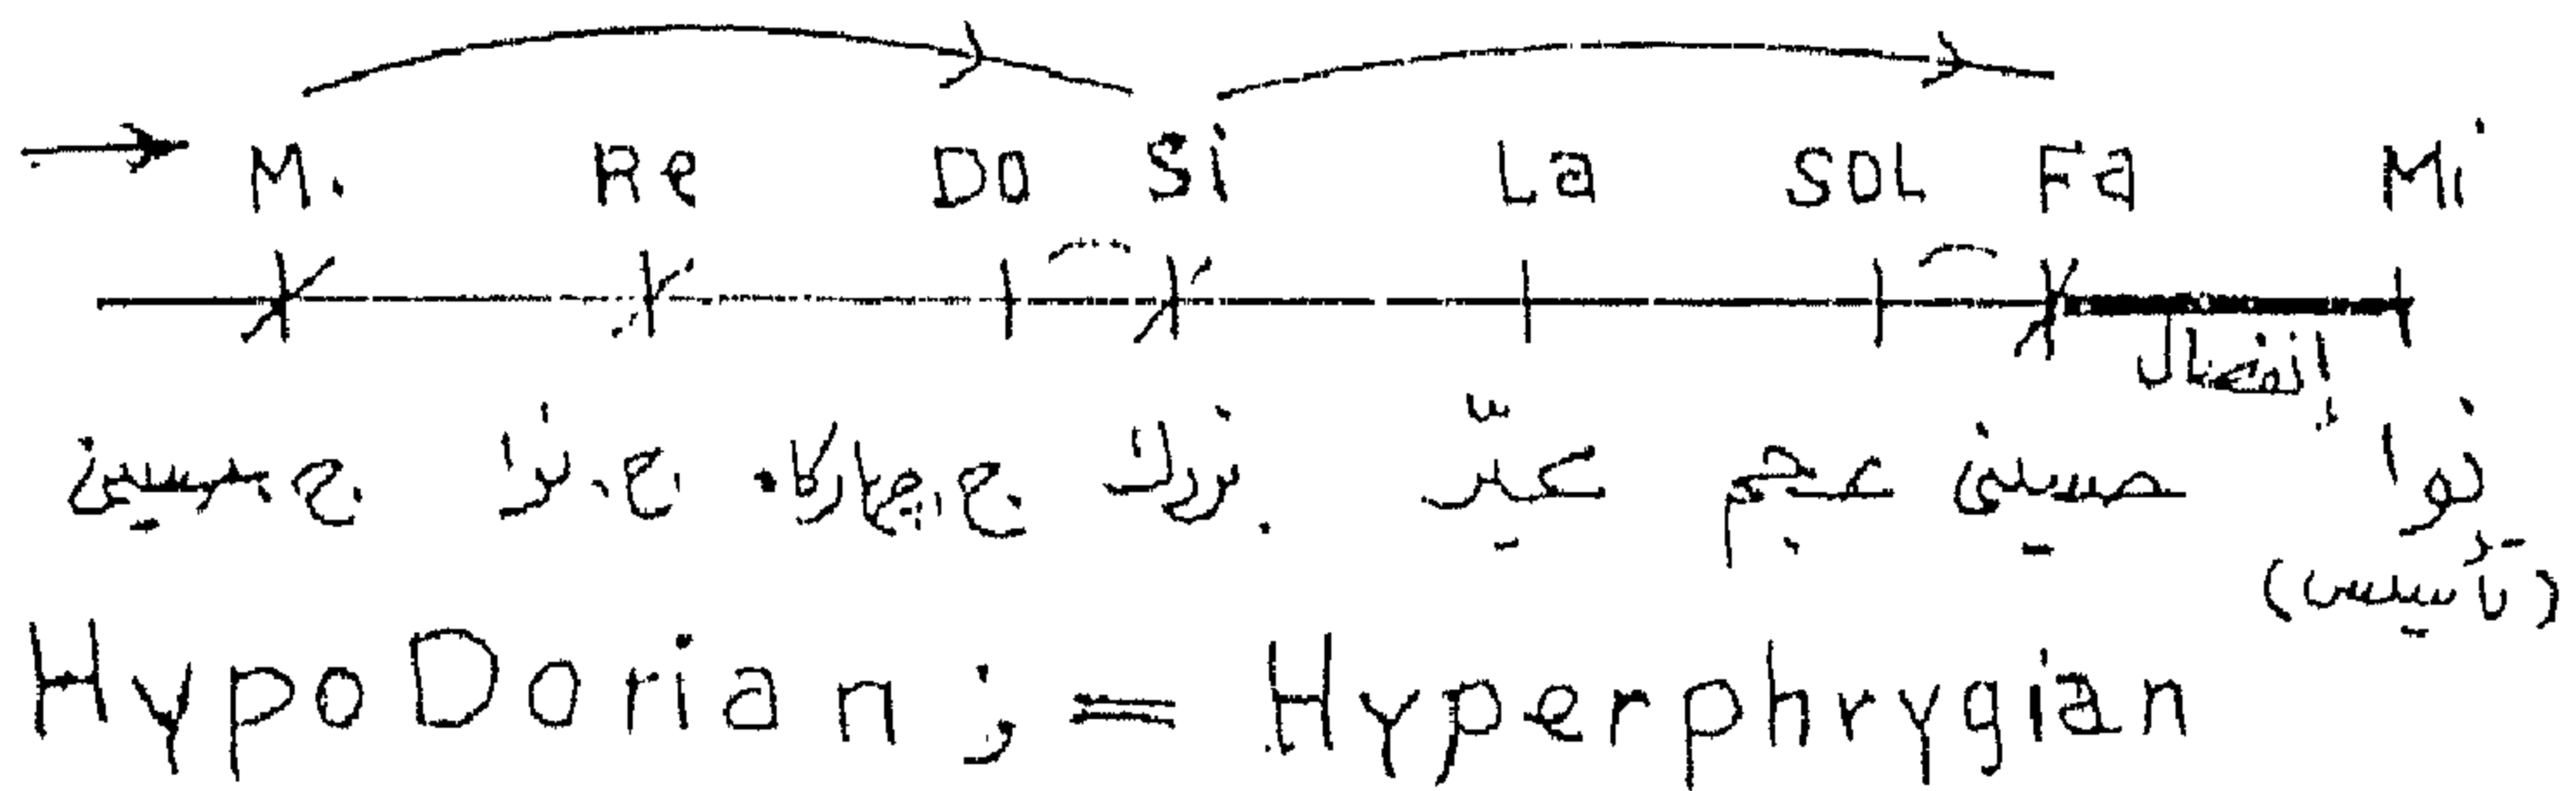 Mi Re Do Si La SOL Fa Mi
إنفصال
ج. حسيني ج. نوا ج. چهارگاه بزرك عجم حسيني نوا
(تأسيس)
HypoDorian ; = Hyperphrygian